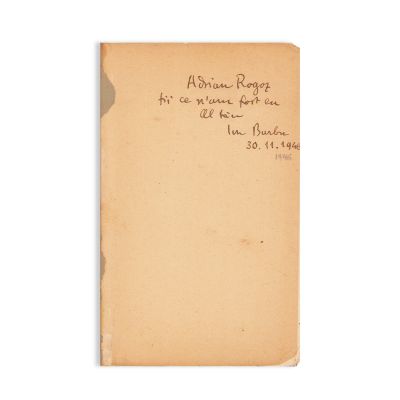 Adrian Rogoz
fii ce n'am fost eu
Al tău
Ion Barbu
30.11.1946
1946